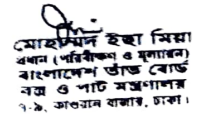 মোহাম্মদ ইছা মিয়া
প্রধান (পরিবীক্ষণ ও মূল্যায়ন)
বাংলাদেশ তাঁত বোর্ড
বস্ত্র ও পাট মন্ত্রণালয়
বাজার, ঢাকা।